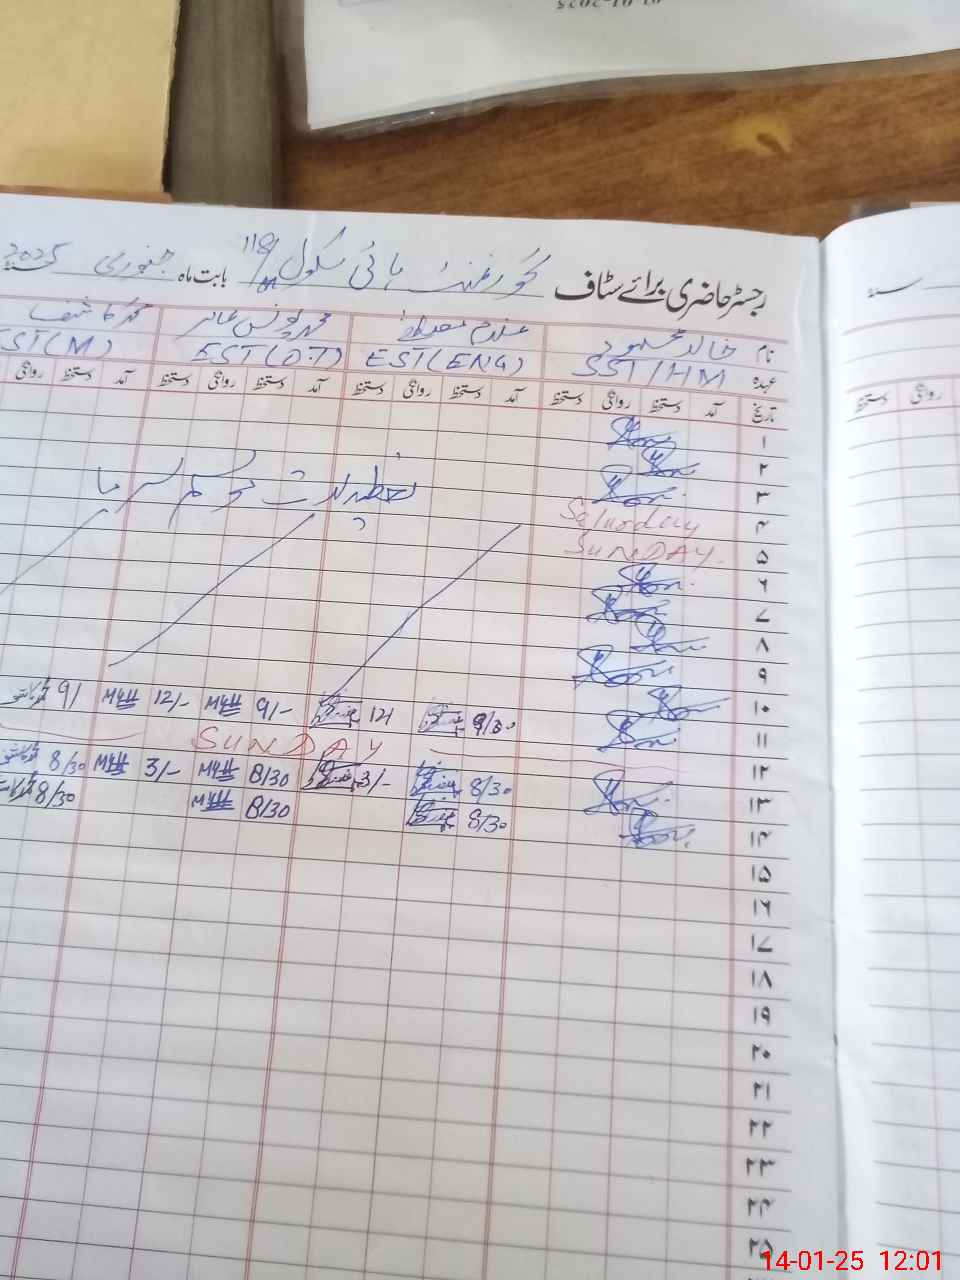 رجسٹر حاضری برائے سٹاف گورنمنٹ ہائی سکول 118 بابت ماہ جنوری 2025
نام خالد محمود غلام مصطفیٰ محمد یونس محمد کاشف
عہدہ SST/HM EST(ENG) EST(D.T) EST(M)
تاریخ آمد دستخط روانگی دستخط آمد دستخط روانگی دستخط آمد دستخط روانگی دستخط آمد دستخط روانگی
۱
۲
۳ تعطیلات موسم سرما
۴ Saturday
۵ SUNDAY
۶
۷
۸
۹
۱۰
۱۱ 9/30 12/ 9/- 12/- 9/
۱۲ SUNDAY
۱۳ 8/30 3/- 8/30 3/- 8/30
۱۴ 8/30 8/30 8/30
۱۵
۱۶
۱۷
۱۸
۱۹
۲۰
۲۱
۲۲
۲۳
۲۴
۲۵
دستخط روانگی
14-01-25 12:01